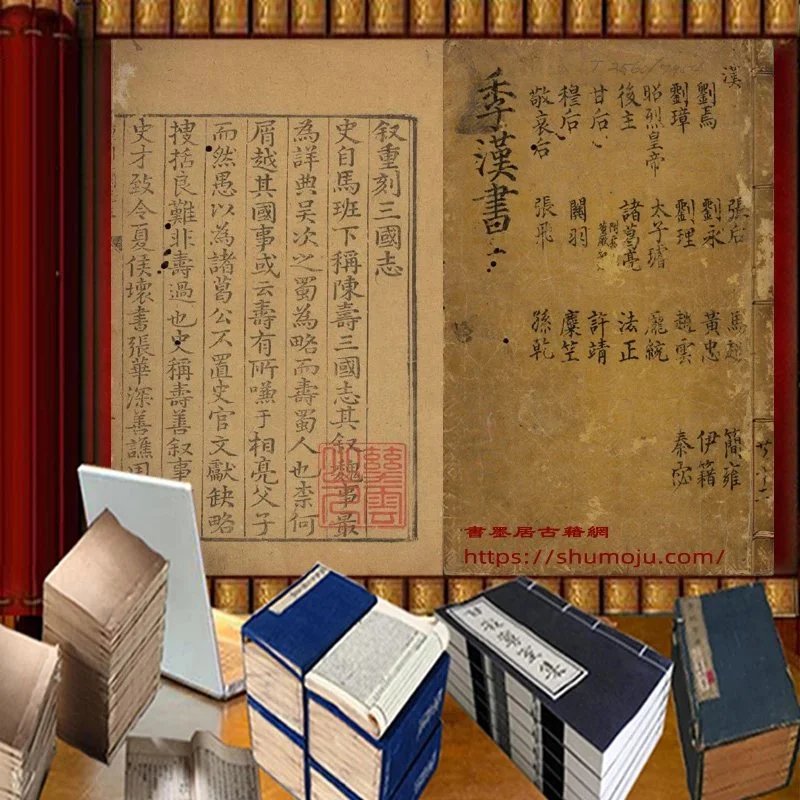 漢 張后 馬超 簡雍
劉焉 劉永 黃忠 伊籍
劉璋 劉理 趙雲 秦宓
昭烈皇帝 太子璿 龐統
後主 諸葛亮 法正
甘后 許靖
穆后 關羽 麋竺
敬哀后 張飛 孫乾
季漢書
叙重刻三國志
史自馬班下稱陳壽三國志其叙魏事最
為詳典吳次之蜀為略而壽蜀人也柰何
屑越其國事或云壽有所嗛于相亮父子
而然愚以為諸葛公不置史官文獻缺略
搜括良難非壽過也史稱壽善叙事
史才致令夏侯壞書張華深善譙周
書墨居古籍網
https://shumoju.com/